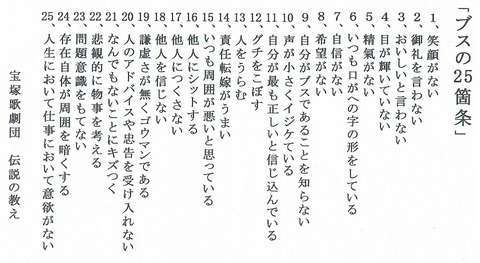 「ブスの25箇条」
1、笑顔がない
2、御礼を言わない
3、おいしいと言わない
4、目が輝いていない
5、精気がない
6、いつも口がへの字の形をしている
7、自信がない
8、希望がない
9、自分がブスであることを知らない
10、声が小さくイジケている
11、自分が最も正しいと信じ込んでいる
12、グチをこぼす
13、人をうらむ
14、責任転嫁がうまい
15、いつも周囲が悪いと思っている
16、他人にシットする
17、他人につくさない
18、他人を信じない
19、謙虚さが無くゴウマンである
20、人のアドバイスや忠告を受け入れない
21、なんでもないことにキズつく
22、悲観的に物事を考える
23、問題意識をもてない
24、存在自体が周囲を暗くする
25、人生において仕事において意欲がない
宝塚歌劇団 伝説の教え